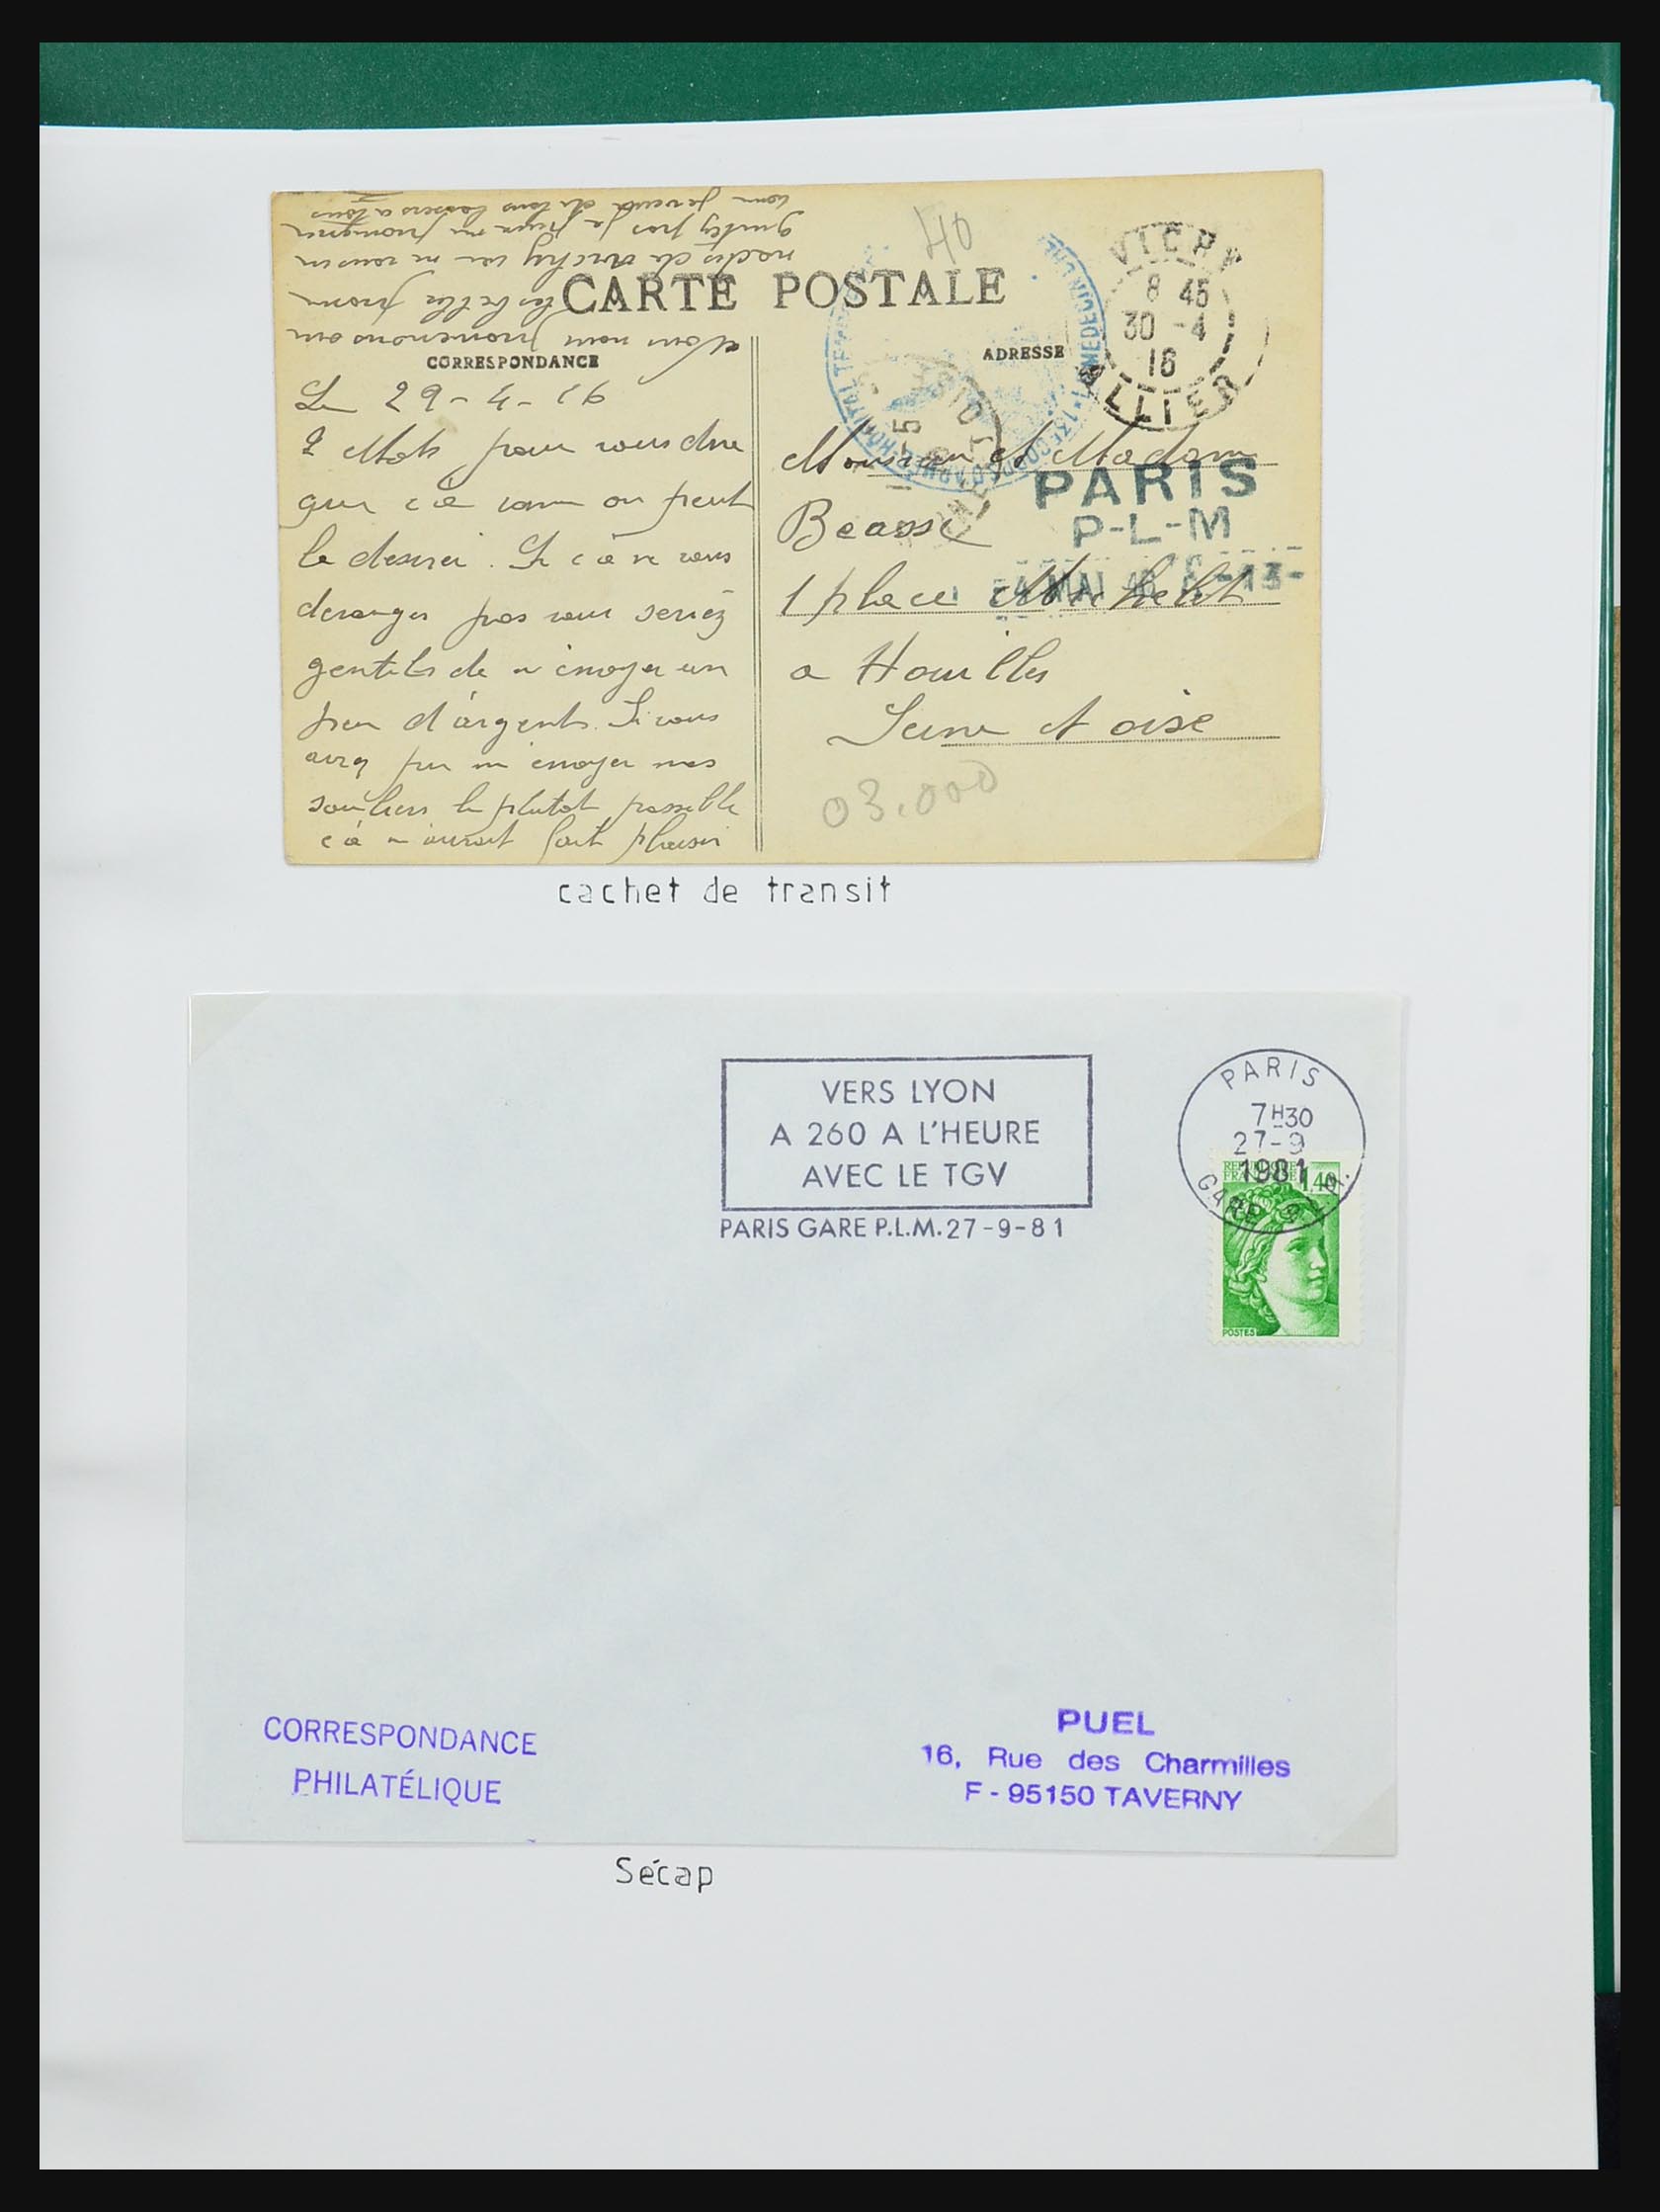 CARTE POSTALE
CORRESPONDANCE
ADRESSE
40
VICHY
8 45
30 -4
16
ALLIER
Le 29-4-16
2 Mots pour vous dire
que ca va comme on peut
le desirer. Si ca ne vous
deranger pas vous seriez
gentils de m'envoyer un
peu d'argent. Si vous
avez pu m envoyer mes
souliers le plutot possible
ca m'aurait fait plaisir
Nous nous promenons
les belles prom
nades de Vichy
Monsieur et Madame
Beasse
1 place Michelet
a Houilles
Seine et oise
PARIS
P-L-M
MAI
03.000
cachet de transit
VERS LYON
A 260 A L'HEURE
AVEC LE TGV
PARIS GARE P.L.M. 27-9-81
PARIS
7H30
27-9
1981
GARE P.L.M.
1,40
POSTES
CORRESPONDANCE
PHILATÉLIQUE
PUEL
16, Rue des Charmilles
F - 95150 TAVERNY
Sécap